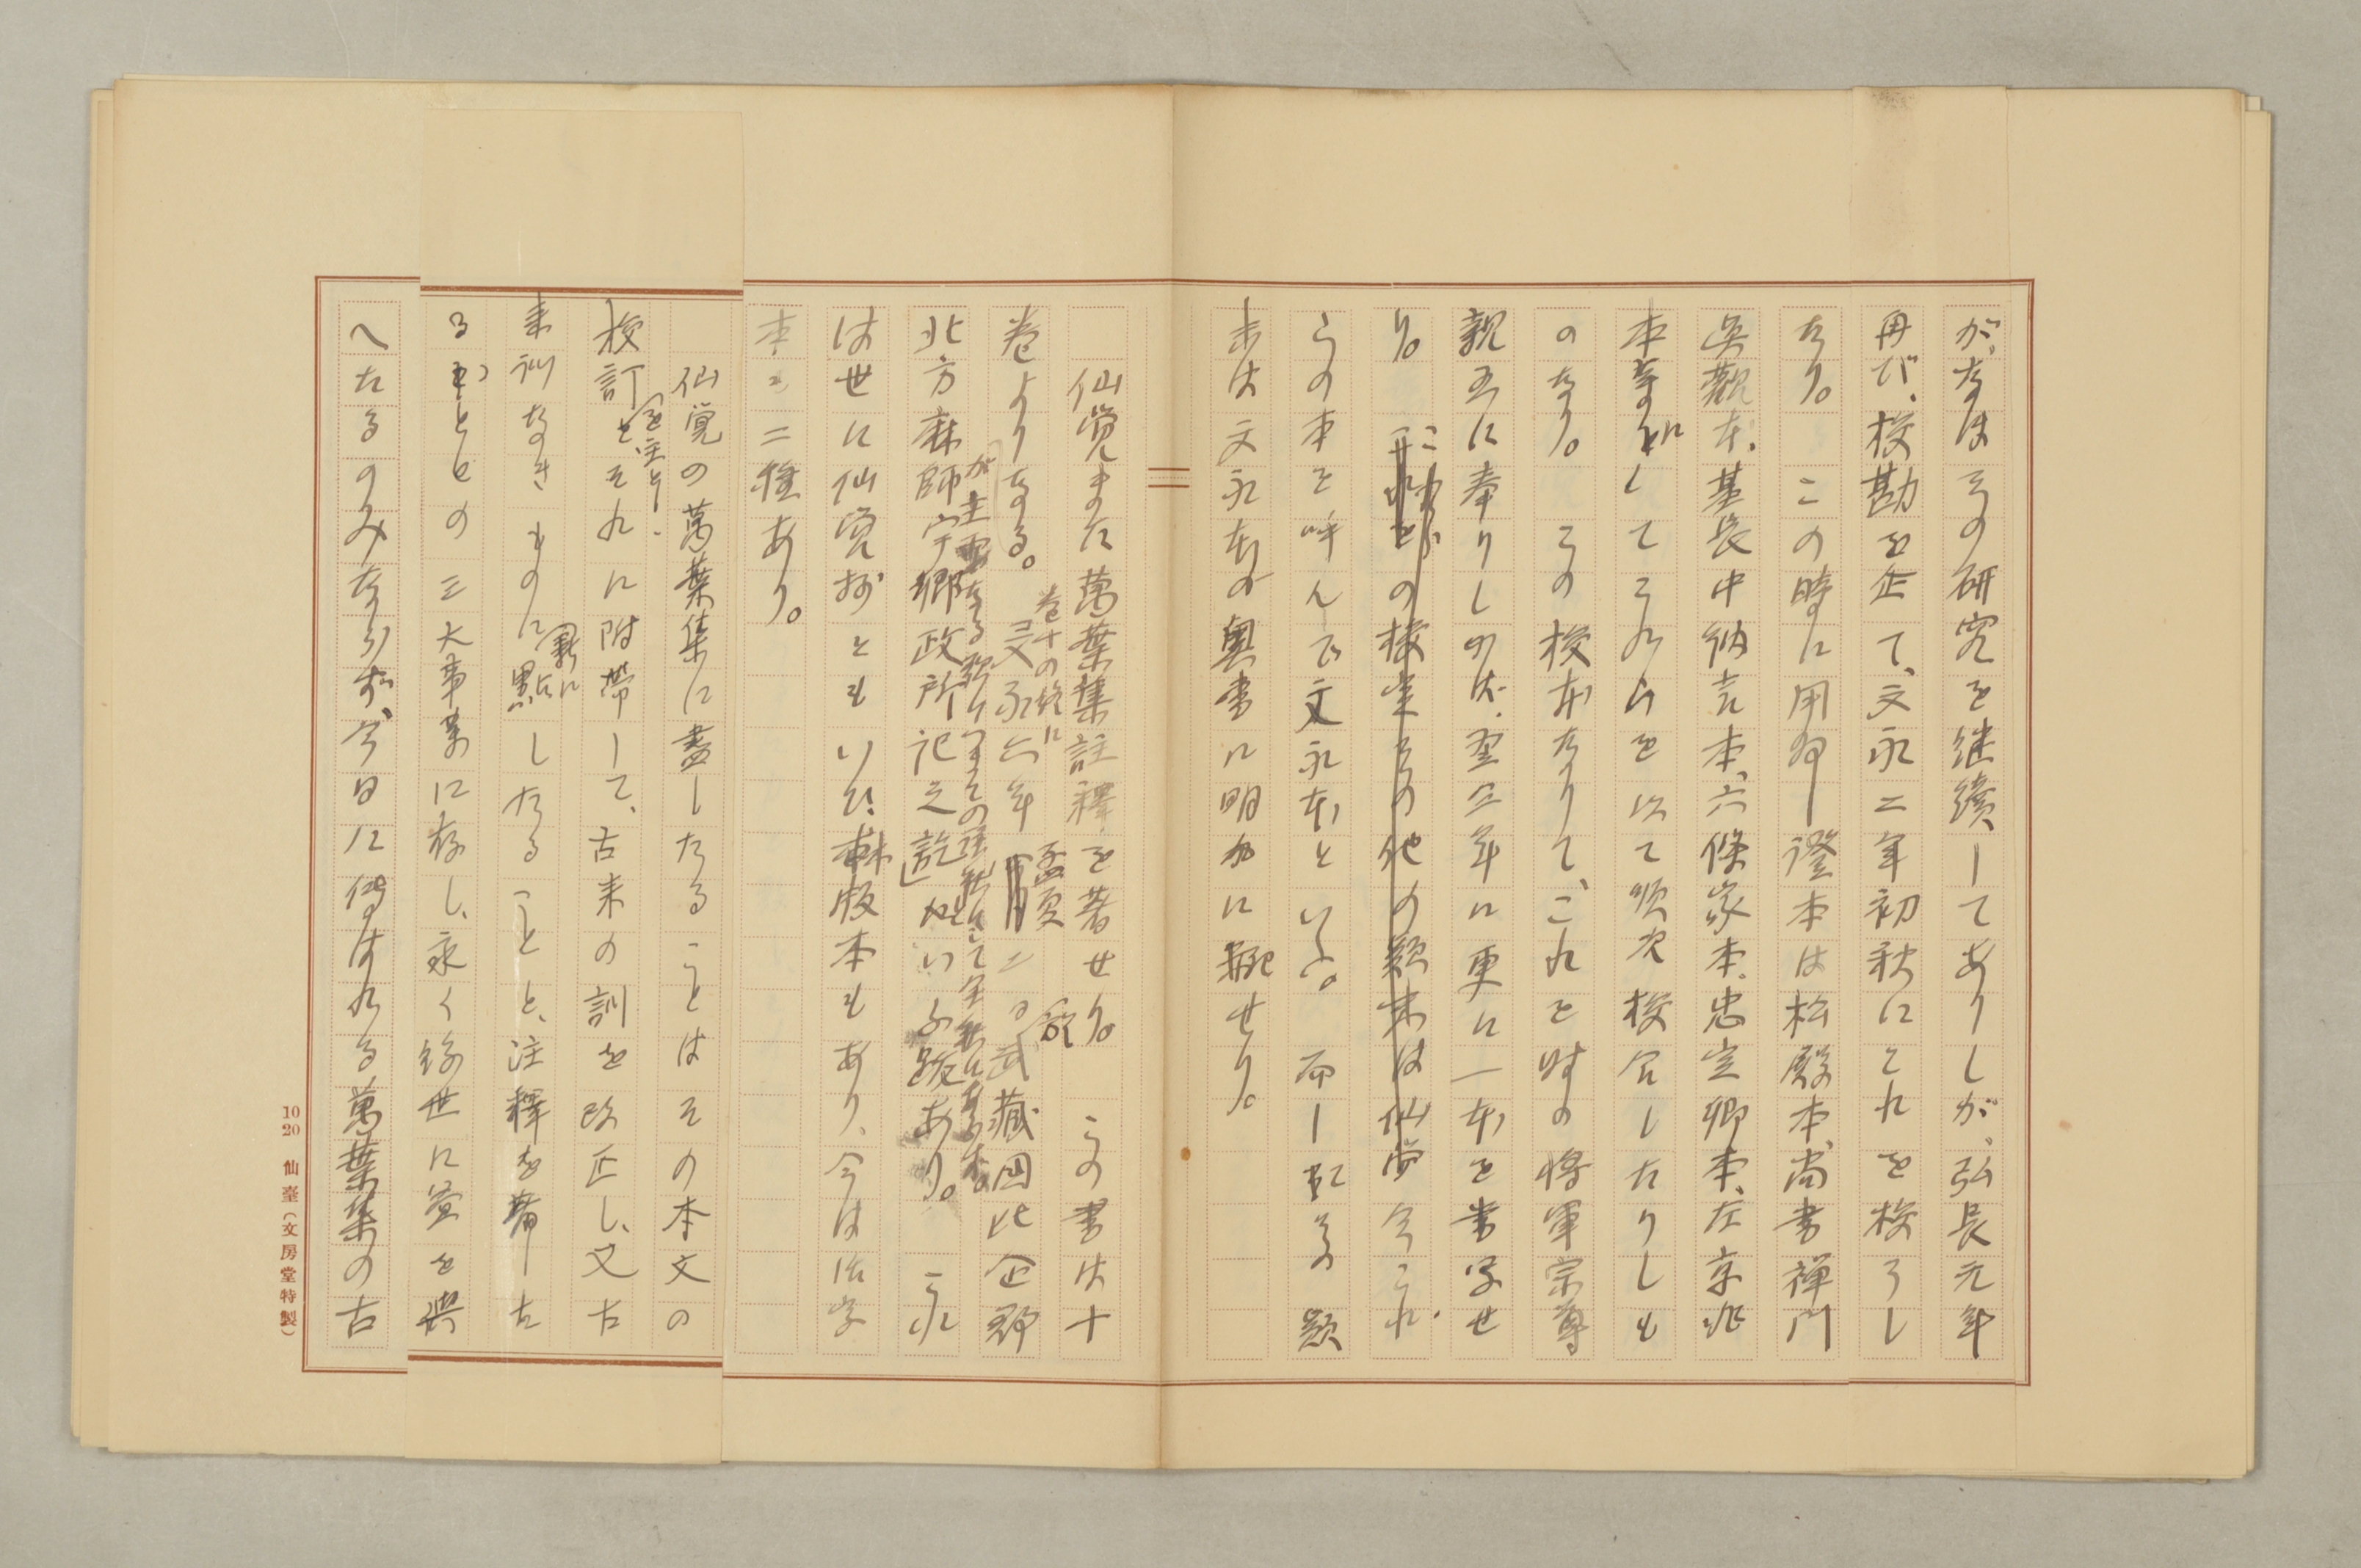 が、なほその研究を継續してありしが、弘長元年
再び、校勘を企て、文永二年初秋にこれを校了し
たり。この時に用ゐし證本は松殿本、尚書禅門
眞觀本、基長中納言本、六條家本、忠定卿本、左京兆
本等にしてこれらを以て順次校合したりしも
のなり。この校本なりて、これを時の将軍宗尊
親王に奉りしのち、翌三年に更に一本を書写せ
り。の校定その他の顚末は仙覚今これ
らの本を呼んで文永本といふ。而してその顚
末は文永本の奥書に明かに録せり。
仙覚また萬葉集註釋を著せり。この書は十
巻よりなる。
巻十の終に
文永六年孟夏二日武藏國比企郡
北方麻師宇郷政所記之訖」といふ跋あり。これ
は世に仙覚抄ともいひ、版本もあり、今は活字
本も二種あり。
仙覚の萬葉集に盡したることはその本文の
校訂を主とし、それに附帶して、古来の訓を改正し、又古
来訓なきものに新に點したることと、注釋を著した
ることとの三大事業に存し、永く後世に益を與
へたるのみならず、今日に傳はれる萬葉集の古
10 20 仙臺(文房堂特製)